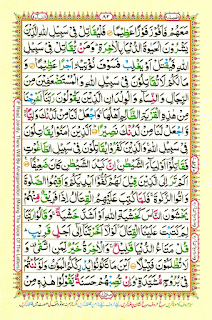 مَعَهُمْ فَاَفُوْزَ فَوْزًا عَظِيْمًا ۝ فَلْيُقَاتِلْ فِيْ سَبِيْلِ اللّٰهِ الَّذِيْنَ
يَشْرُوْنَ الْحَيٰوةَ الدُّنْيَا بِالْاٰخِرَةِ ؕ وَمَنْ يُّقَاتِلْ فِيْ سَبِيْلِ اللّٰهِ
فَيُقْتَلْ اَوْ يَغْلِبْ فَسَوْفَ نُؤْتِيْهِ اَجْرًا عَظِيْمًا ۝ وَ
مَا لَكُمْ لَا تُقَاتِلُوْنَ فِيْ سَبِيْلِ اللّٰهِ وَالْمُسْتَضْعَفِيْنَ مِنَ
الرِّجَالِ وَالنِّسَآءِ وَالْوِلْدَانِ الَّذِيْنَ يَقُوْلُوْنَ رَبَّنَآ اَخْرِجْنَا
مِنْ هٰذِهِ الْقَرْيَةِ الظَّالِمِ اَهْلُهَا ۚ وَاجْعَلْ لَّنَا مِنْ لَّدُنْكَ وَلِيًّا
وَّاجْعَلْ لَّنَا مِنْ لَّدُنْكَ نَصِيْرًا ۝ اَلَّذِيْنَ اٰمَنُوْا يُقَاتِلُوْنَ
فِيْ سَبِيْلِ اللّٰهِ ۚ وَالَّذِيْنَ كَفَرُوْا يُقَاتِلُوْنَ فِيْ سَبِيْلِ الطَّاغُوْتِ
فَقَاتِلُوْٓا اَوْلِيَآءَ الشَّيْطٰنِ ۚ اِنَّ كَيْدَ الشَّيْطٰنِ كَانَ ضَعِيْفًا ۝
اَلَمْ تَرَ اِلَى الَّذِيْنَ قِيْلَ لَهُمْ كُفُّوْٓا اَيْدِيَكُمْ وَاَقِيْمُوا الصَّلٰوةَ
وَاٰتُوا الزَّكٰوةَ ۚ فَلَمَّا كُتِبَ عَلَيْهِمُ الْقِتَالُ اِذَا فَرِيْقٌ مِّنْهُمْ
يَخْشَوْنَ النَّاسَ كَخَشْيَةِ اللّٰهِ اَوْ اَشَدَّ خَشْيَةً ۚ وَقَالُوْا رَبَّنَا
لِمَ كَتَبْتَ عَلَيْنَا الْقِتَالَ ۚ لَوْلَآ اَخَّرْتَنَآ اِلٰٓى اَجَلٍ قَرِيْبٍ ؕ
قُلْ مَتَاعُ الدُّنْيَا قَلِيْلٌ ۚ وَالْاٰخِرَةُ خَيْرٌ لِّمَنِ اتَّقٰى ۟ وَ
لَا تُظْلَمُوْنَ فَتِيْلًا ۝ اَيْنَ مَا تَكُوْنُوْا يُدْرِكْكُّمُ الْمَوْتُ وَلَوْ كُنْتُمْ
فِيْ بُرُوْجٍ مُّشَيَّدَةٍ ؕ وَاِنْ تُصِبْهُمْ حَسَنَةٌ يَّقُوْلُوْا هٰذِهٖ مِنْ